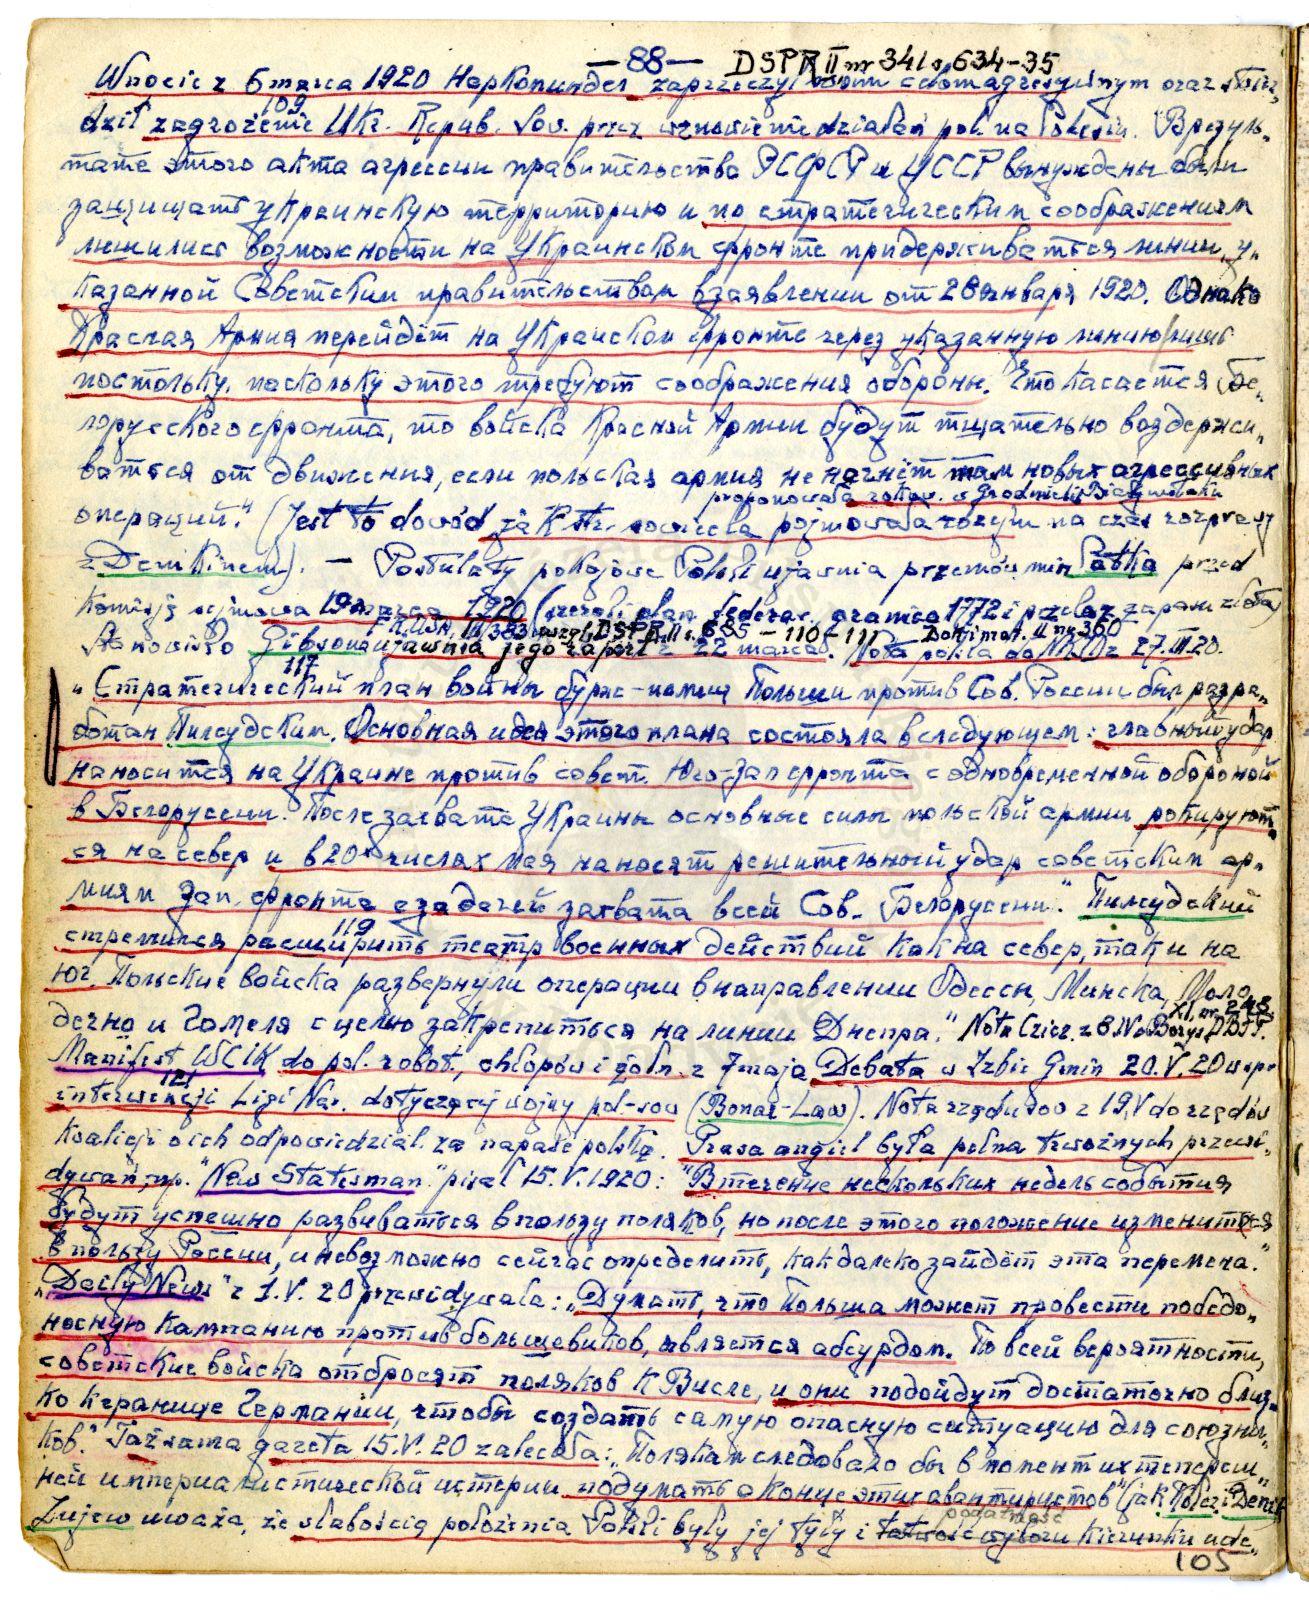 —88— DSPR II nr 341 s. 634-35
W nocie z 6 marca 1920 Наркоминдел zaprzeczył swoim celom agresywnym oraz stwier„
dził zagrożenie Ukr. Repub. Sov. przez wznowienie działań pol. na Polesiu. "В резуль„
109
тате этого акта агрессии правительства РСФСР и УССР вынуждены были
защищать украинскую территорию и по стратегическим соображениям
лишились возможности на Украинском фронте придерживаться линии, у„
казанной Советским правительством в заявлении от 28 января 1920. Однако
Красная Армия перейдёт на Украинском фронте через указанную линию лишь
постольку, поскольку этого требуют соображения обороны. Что касается бе„
лорусского фронта, то войска Красной Армии будут тщательно воздержи„
ваться от движения, если польская армия не начнёт там новых агрессивных
proponowała rokow. w Grodnie lub Białymstoku
операций." (Jest to dowód, że R str. sowiecka pojmowała rozejm na czas rozprawy
z Denikinem). — Postulaty pokojowe Polski ujawnia przemów. min Patka przed
Komisją sejmową 19 marca 1920 (szeroki plan federac. granica 1772 i przelaz
F.R.USA, III/383 DSPR II s. 685 — 110-111 Dok i mat. II nr 360
Stanowisko Gibsona ujawnia jego raport z 22 marca. Nota polska do NKID z 27.III.20.
117
" Стратегический план войны бурж-помещ Польши против Сов. России был разра„
ботан Пилсудским. Основная идея этого плана состояла в следующем: главный удар
наносится на Украине против совет. Юго-Зап фронта с одновременной обороной
в Белоруссии. После захвата Украины основные силы польской армии рокируют„
ся на север и в 20х числах мая наносят решительный удар советским ар„
миям Зап. фронта с задачей захвата всей Сов. Белоруссии." Пилсудский
119
стремился расширить театр военных действий как на север, так и на
юг. Польские войска развернули операции в направлении Одессы, Минска, Моло„
дечно и Гомеля с целью закрепиться на линии Днепра." Nota Czicz. z 8.IV о Borys.
Manifest WCIK do pol. robot., chłopów i żołn. z 7 maja Debata w Izbie Gmin 20.V.20 w spr
121
interwencji Ligi Nar. dotyczącej wojny pol-sow (Bonar-Law). Nota rządu sow z 19.V do rządów
Koalicji o ich odpowiedzial. za napaść polską. Prasa angiel była pełna trwożnych przewi„
dywań, np. "New Statesman" pisał 15.V.1920: "В течение нескольких недель события
будут успешно развиваться в пользу поляков, но после этого положение изменится
в пользу России, и невозможно сейчас определить, как далеко зайдёт эта перемена."
„Daily News" z 1.V.20 przewidywała: „Думать, что Польша может провести победо„
носную кампанию против большевиков, является абсурдом. По всей вероятности,
советские войска отбросят поляков к Висле, и они подойдут достаточно близ„
ко к границе Германии, чтобы создать самую опасную ситуацию для союзни„
ков." Taż sama gazeta 15.V.20 zalecała: „Полякам следовало бы в момент их тепереш„
ней империалистической истерии подумать о конце этих авантюристов" (jak Kołcz. i Denik
pogatność
Zujew uważa, że słabością położenia Polski były jej tyły i wyboru kierunku ude„
105